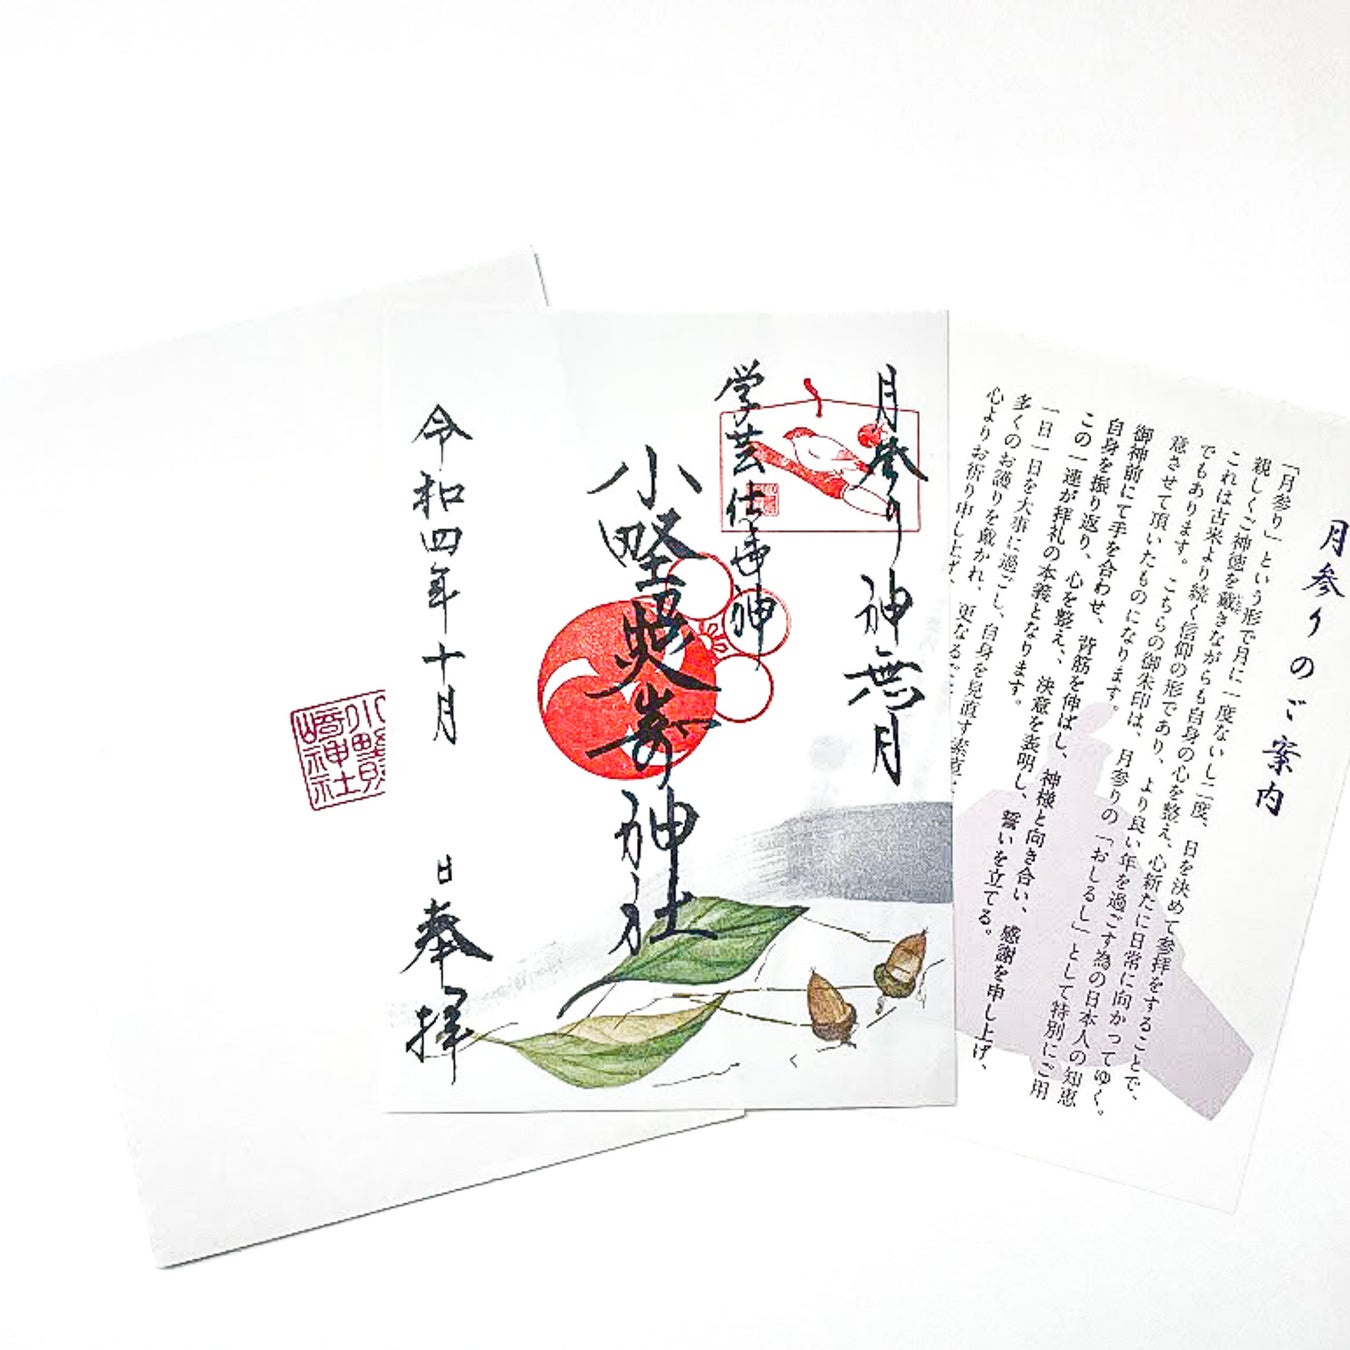 月参り 神無月
学芸仕事神
小野照崎神社
令和四年十月 日 奉拝
小野照
崎神社
月参りのご案内
「月参り」という形で月に一度ないし二度、日を決めて参拝をすることで、
親しくご神徳を戴きながらも自身の心を整え、心新たに日常に向かってゆく。
これは古来より続く信仰の形であり、より良い年を過ごす為の日本人の知恵
でもあります。こちらの御朱印は、月参りの「おしるし」として特別にご用
意させて頂いたものになります。
御神前にて手を合わせ、背筋を伸ばし、神様と向き合い、感謝を申し上げ、
自身を振り返り、心を整え、決意を表明し、誓いを立てる。
この一連が拝礼の本義となります。
一日一日を大事に過ごし、自身を見直す
多くのお護りを戴かれ、更なる
心よりお祈り申し上げ